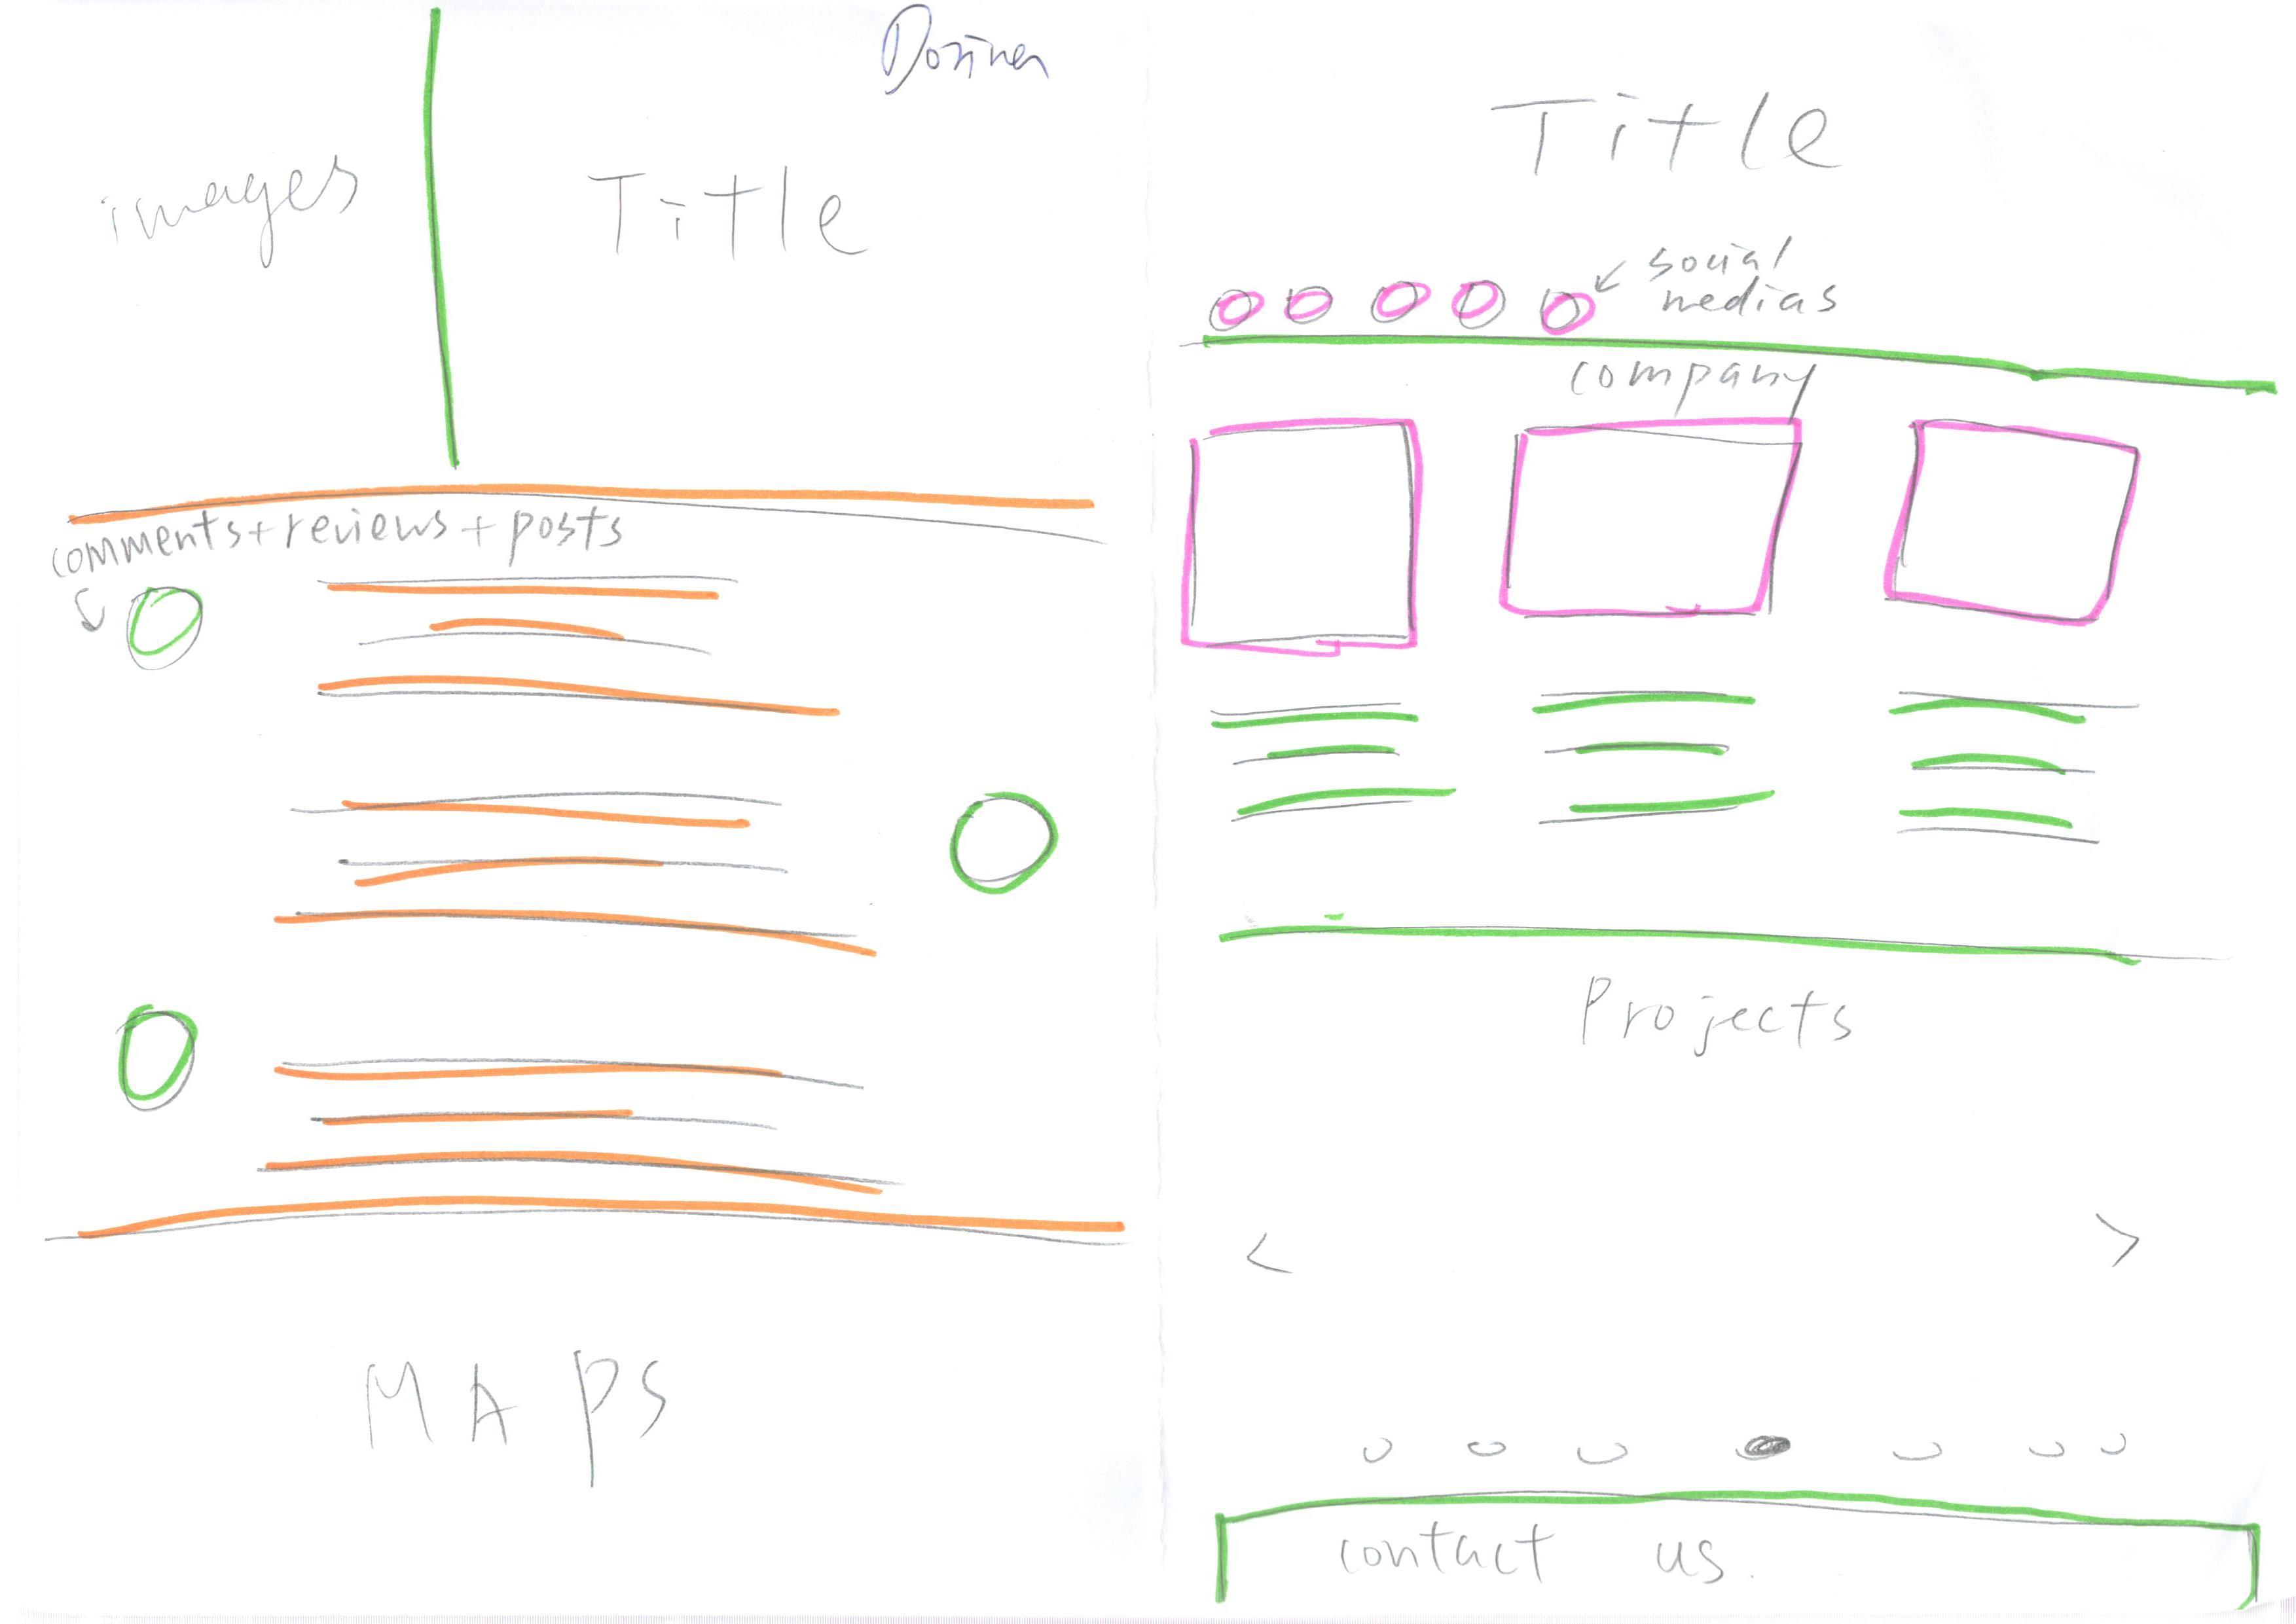 images
Title
comments+reviews+posts
MAPS
Title
social
medias
company
Projects
<
>
contact us.